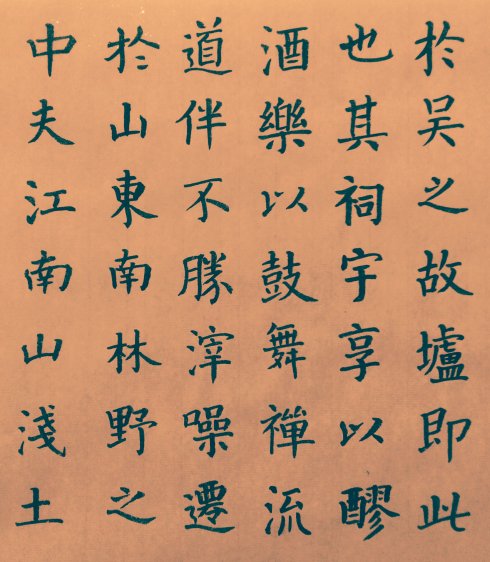 於吴之故壚即此
也其祠宇享以醪
酒樂以鼓舞禪流
道伴不勝滓噪遷
於山東南林野之
中夫江南山淺土